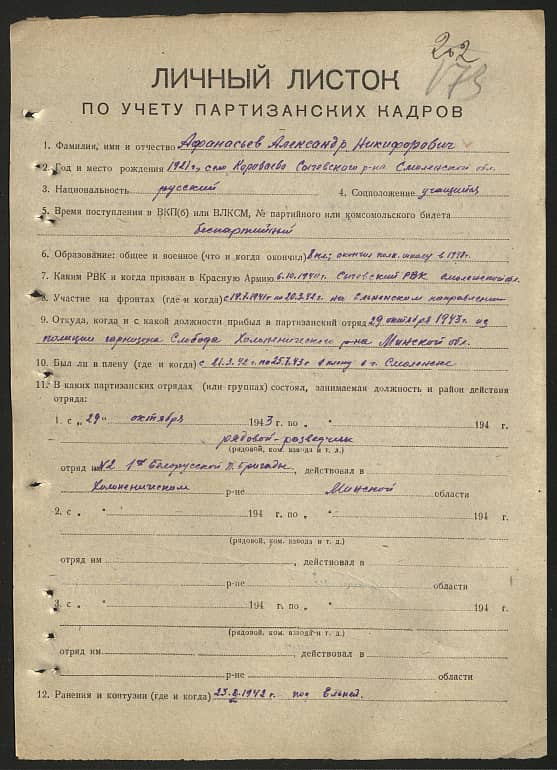 202
173
ЛИЧНЫЙ ЛИСТОК
ПО УЧЕТУ ПАРТИЗАНСКИХ КАДРОВ
1. Фамилия, имя и отчество Афанасьев Александр Никифорович
2. Год и место рождения 1921 г., село Короваево Сычевского р-на Смоленской обл.
3. Национальность русский 4. Соцположение учащийся
5. Время поступления в ВКП(б) или ВЛКСМ, № партийного или комсомольского билета
беспартийный
6. Образование: общее и военное (что и когда окончил) окончил полк. школу в 1941 г.
7. Каким РВК и когда призван в Красную Армию 6.10.1940 г. Сычевский РВК Смоленской обл.
8. Участие на фронтах (где и когда) с 19.7.1941 г. по 20.3.42 г. на Ельненском направлении
9. Откуда, когда и с какой должности прибыл в партизанский отряд 29 октября 1943 г. из
полиции гарнизона Слобода Холопенического р-на Минской обл.
10. Был ли в плену (где и когда) с 21.3.42 г. по 25.7.43 г. в плену в г. Смоленске
11. В каких партизанских отрядах (или группах) состоял, занимаемая должность и район действия
отряда:
1. с „29" октября 1943 г. по „ " 194 г.
рядовой-разведчик
(рядовой, ком. взвода и т. д.)
отряд им №2 1ой Белорусской п. бригады, действовал в
Холопеническом р-не Минской области
2. с „ " 194 г. по „ " 194 г.
(рядовой, ком. взвода и т. д.)
отряд им , действовал в
р-не области
3. с „ " 194 г. по „ " 194 г.
(рядовой, ком. взвода и т. д.)
отряд им , действовал в
р-не области
12. Ранения и контузии (где и когда) 23.II.1942 г. под Ельней.